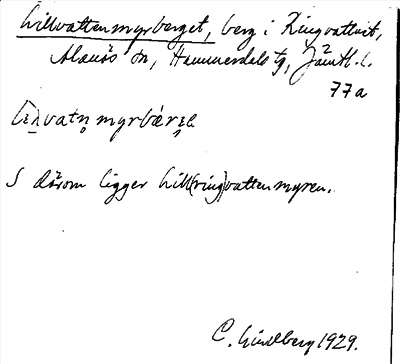 Lillvattenmyrberget, berg i Ringvattnet,
Alanäs sn, Hammerdals tg, Jämtl. l.
77a
S därom ligger Lill(ring)vattenmyren.
C. Lindberg 1929.